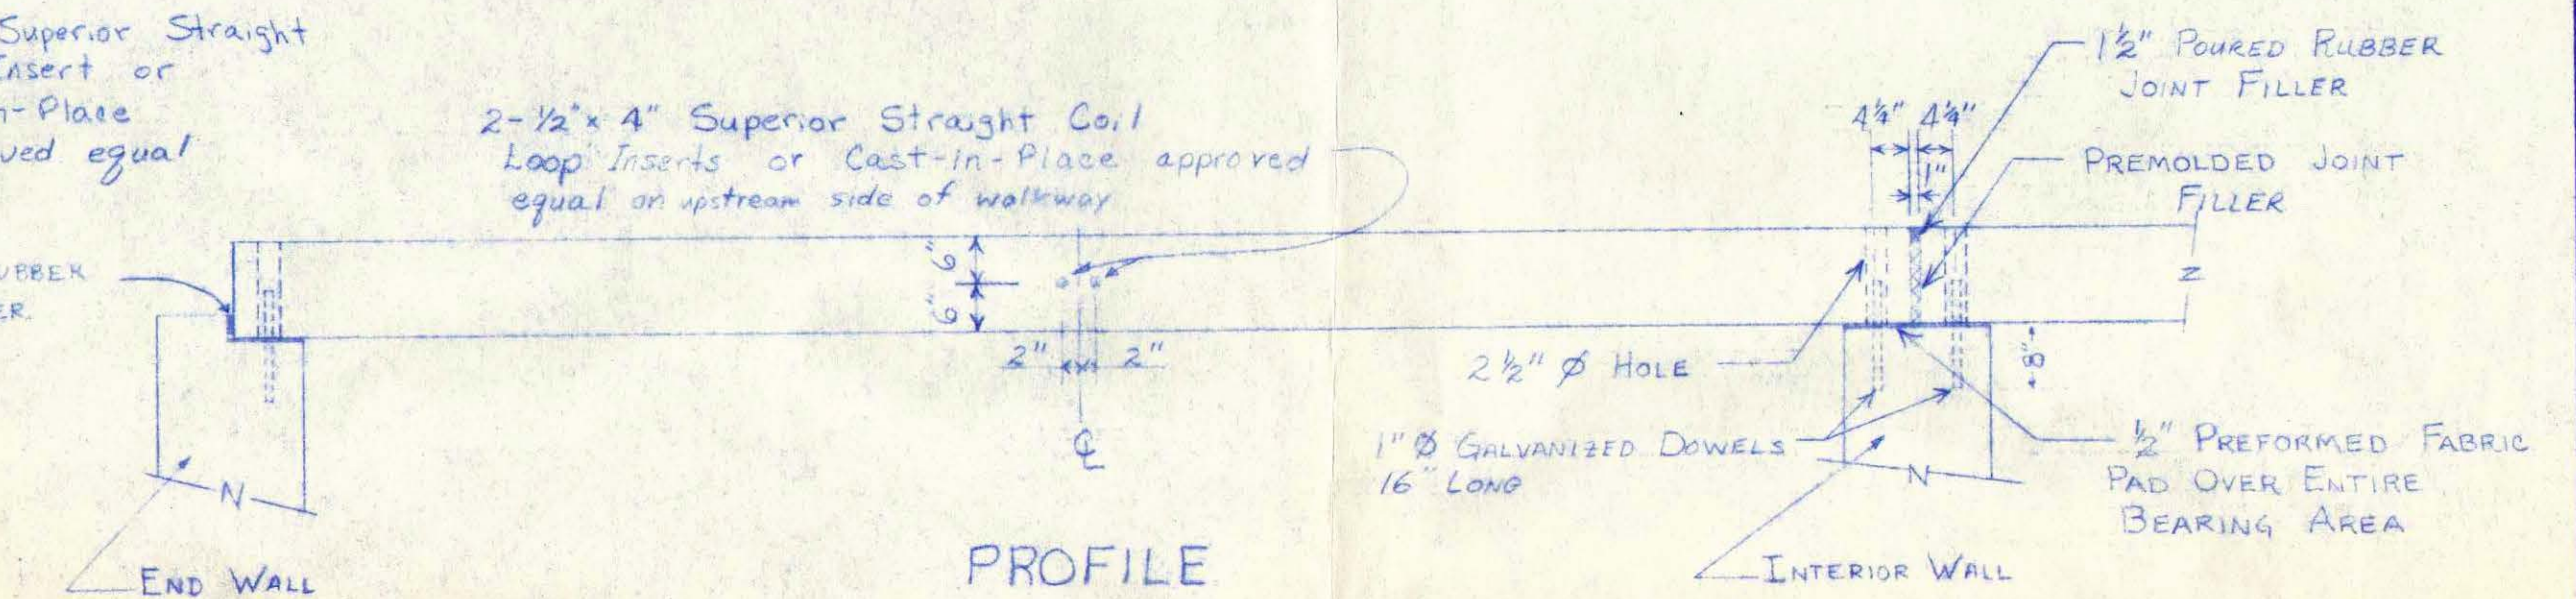 Superior Straight
Insert or
n-Place
ved equal
2-½"x 4" Superior Straight Coil
Loop Inserts or Cast-in-Place approved
equal on upstream side of walkway
1½" POURED RUBBER
JOINT FILLER
4¼" 4¼"
1"
PREMOLDED JOINT
FILLER
UBBER
ER.
6"
6"
2" 2"
℄
2½" Ø HOLE
8"
1" Ø GALVANIZED DOWELS
16" LONG
½" PREFORMED FABRIC
PAD OVER ENTIRE
BEARING AREA
END WALL
PROFILE
INTERIOR WALL